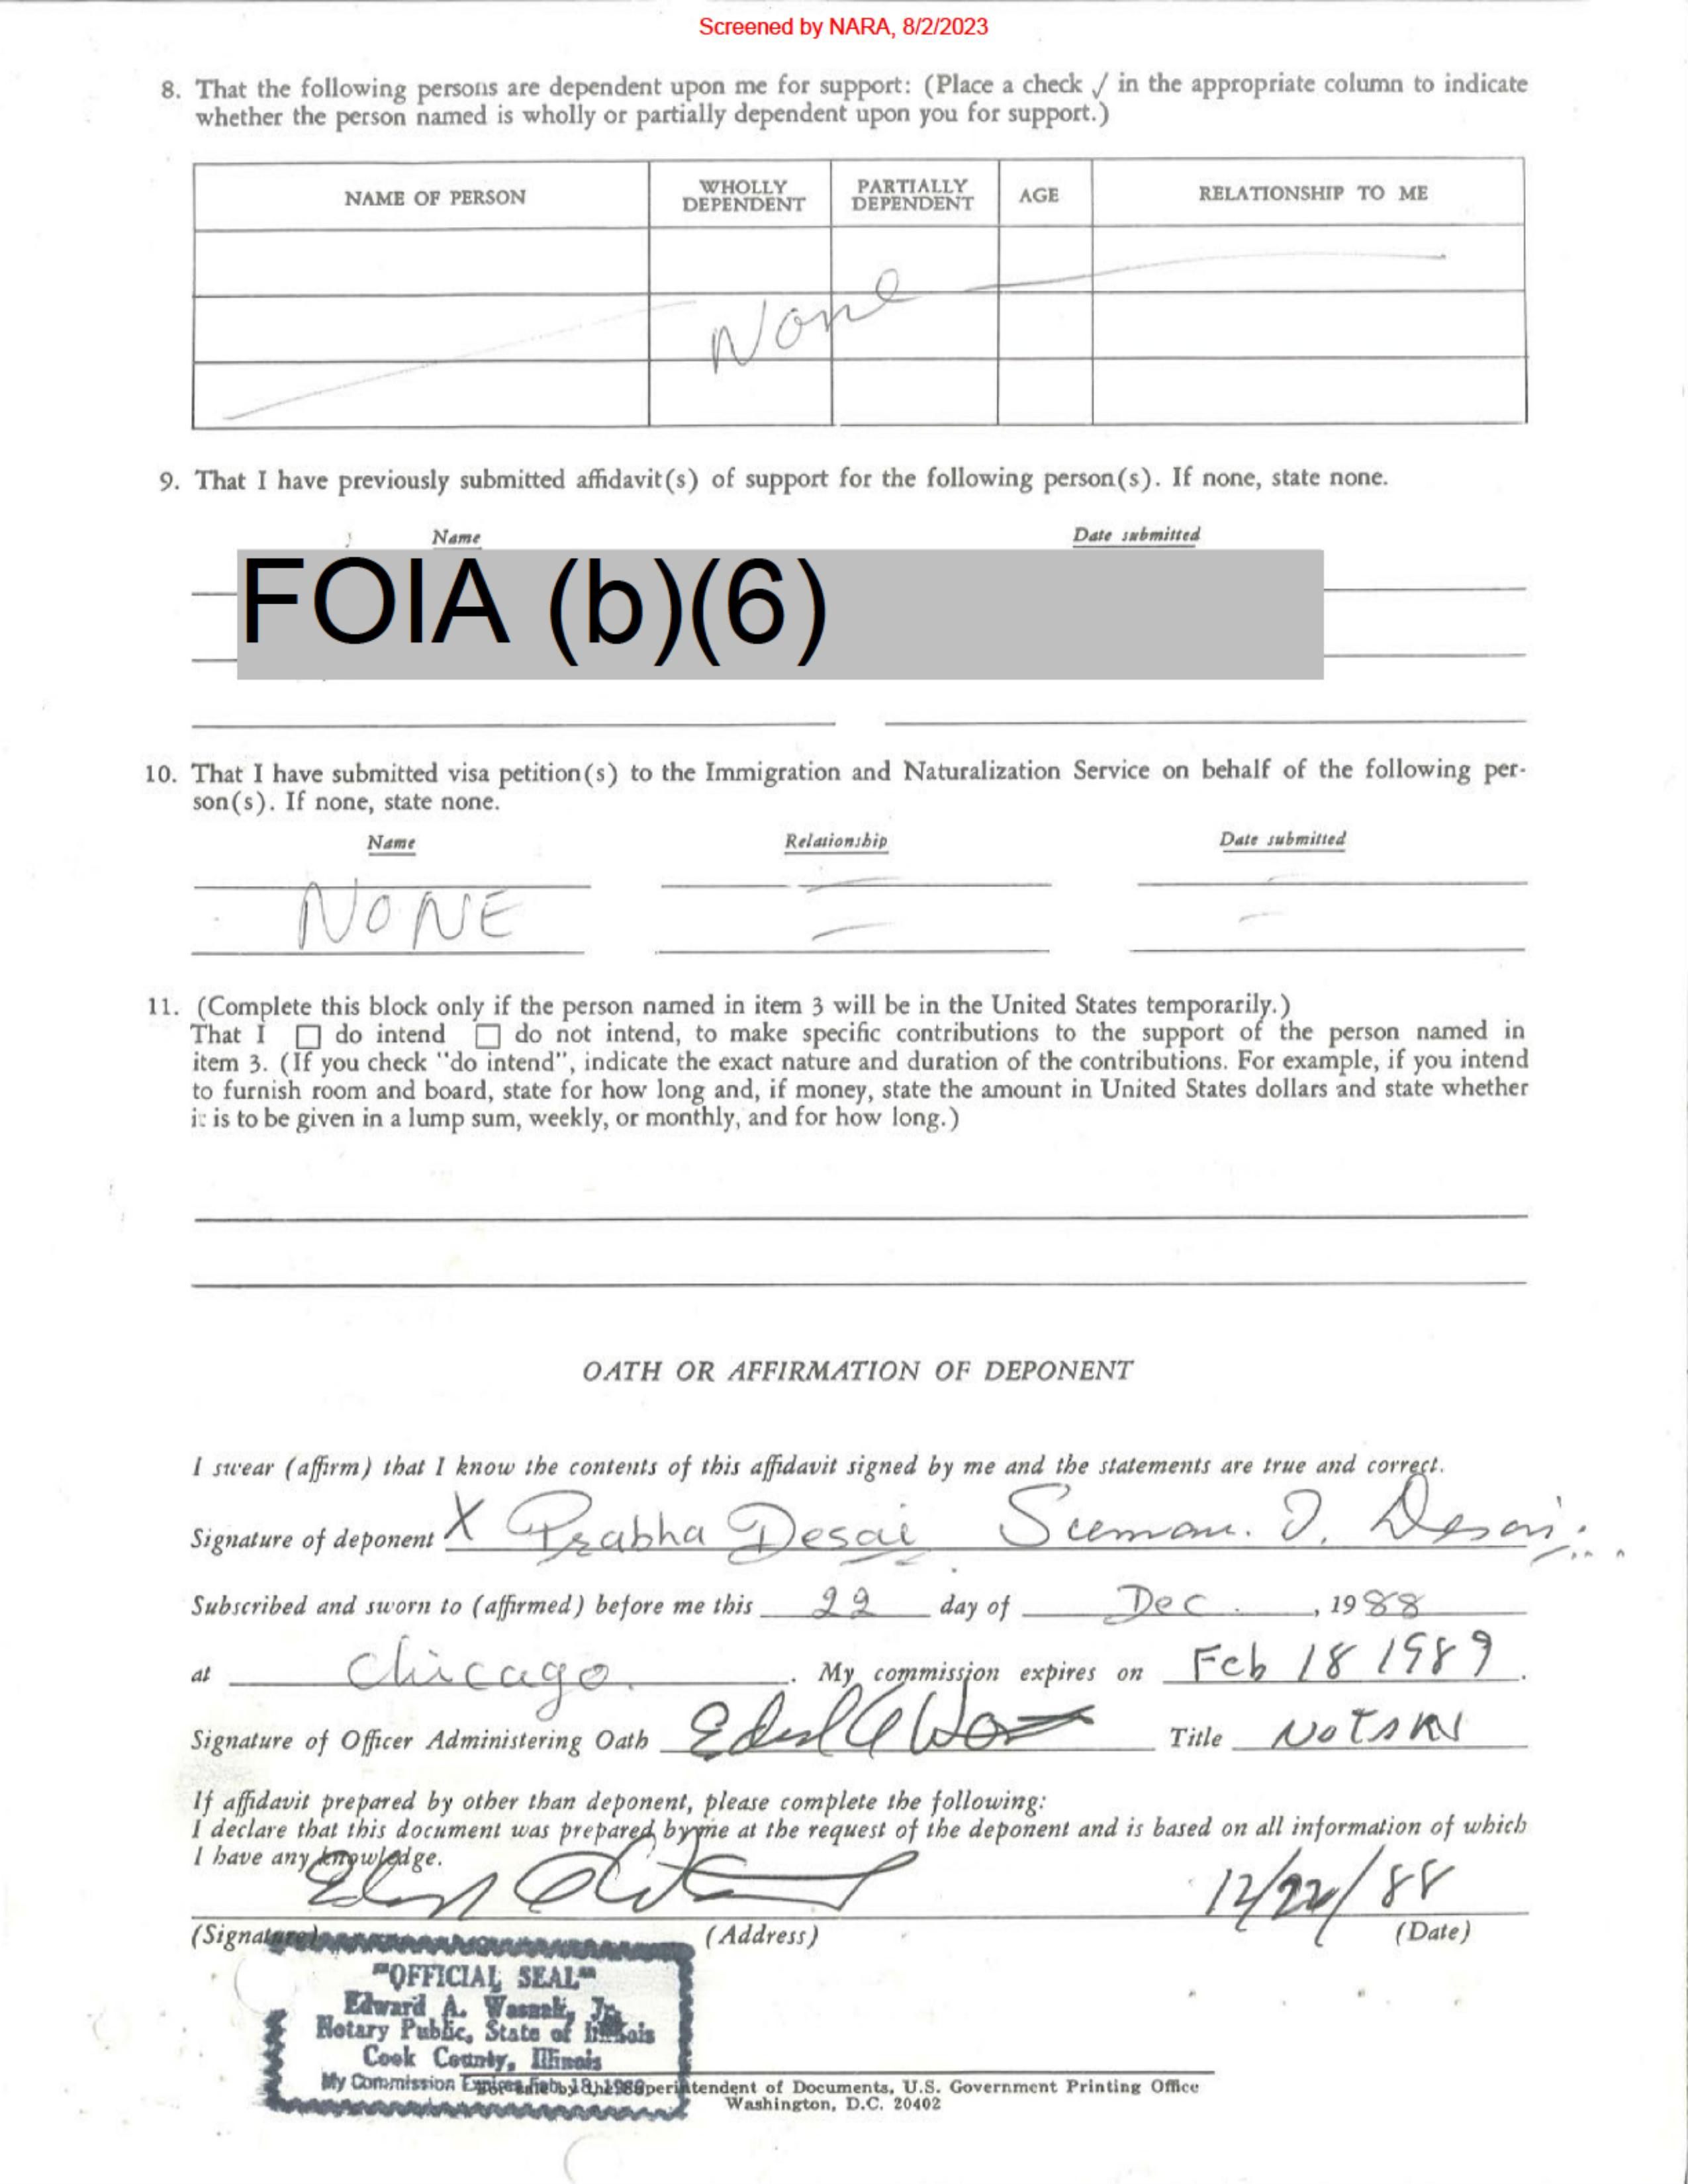 Screened by NARA, 8/2/2023
8. That the following persons are dependent upon me for support: (Place a check √ in the appropriate column to indicate
whether the person named is wholly or partially dependent upon you for support.)
NAME OF PERSON WHOLLY DEPENDENT PARTIALLY DEPENDENT AGE RELATIONSHIP TO ME
None
9. That I have previously submitted affidavit(s) of support for the following person(s). If none, state none.
Name Date submitted
FOIA (b)(6)
10. That I have submitted visa petition(s) to the Immigration and Naturalization Service on behalf of the following per-
son(s). If none, state none.
Name Relationship Date submitted
NONE
11. (Complete this block only if the person named in item 3 will be in the United States temporarily.)
That I ☐ do intend ☐ do not intend, to make specific contributions to the support of the person named in
item 3. (If you check "do intend", indicate the exact nature and duration of the contributions. For example, if you intend
to furnish room and board, state for how long and, if money, state the amount in United States dollars and state whether
it is to be given in a lump sum, weekly, or monthly, and for how long.)
OATH OR AFFIRMATION OF DEPONENT
I swear (affirm) that I know the contents of this affidavit signed by me and the statements are true and correct.
Signature of deponent X Prabha Desai Desai
Subscribed and sworn to (affirmed) before me this 22 day of Dec. , 1988
at Chicago. My commission expires on Feb 18 1989.
Signature of Officer Administering Oath Title NOTARY
If affidavit prepared by other than deponent, please complete the following:
I declare that this document was prepared by me at the request of the deponent and is based on all information of which
I have any knowledge.
12/22/88
(Signature) (Address) (Date)
"OFFICIAL SEAL"
Edward A. Jr.
Notary Public, State of Illinois
Cook County, Illinois
My Commission Expires Feb. 18, 1989
Superintendent of Documents, U.S. Government Printing Office
Washington, D.C. 20402